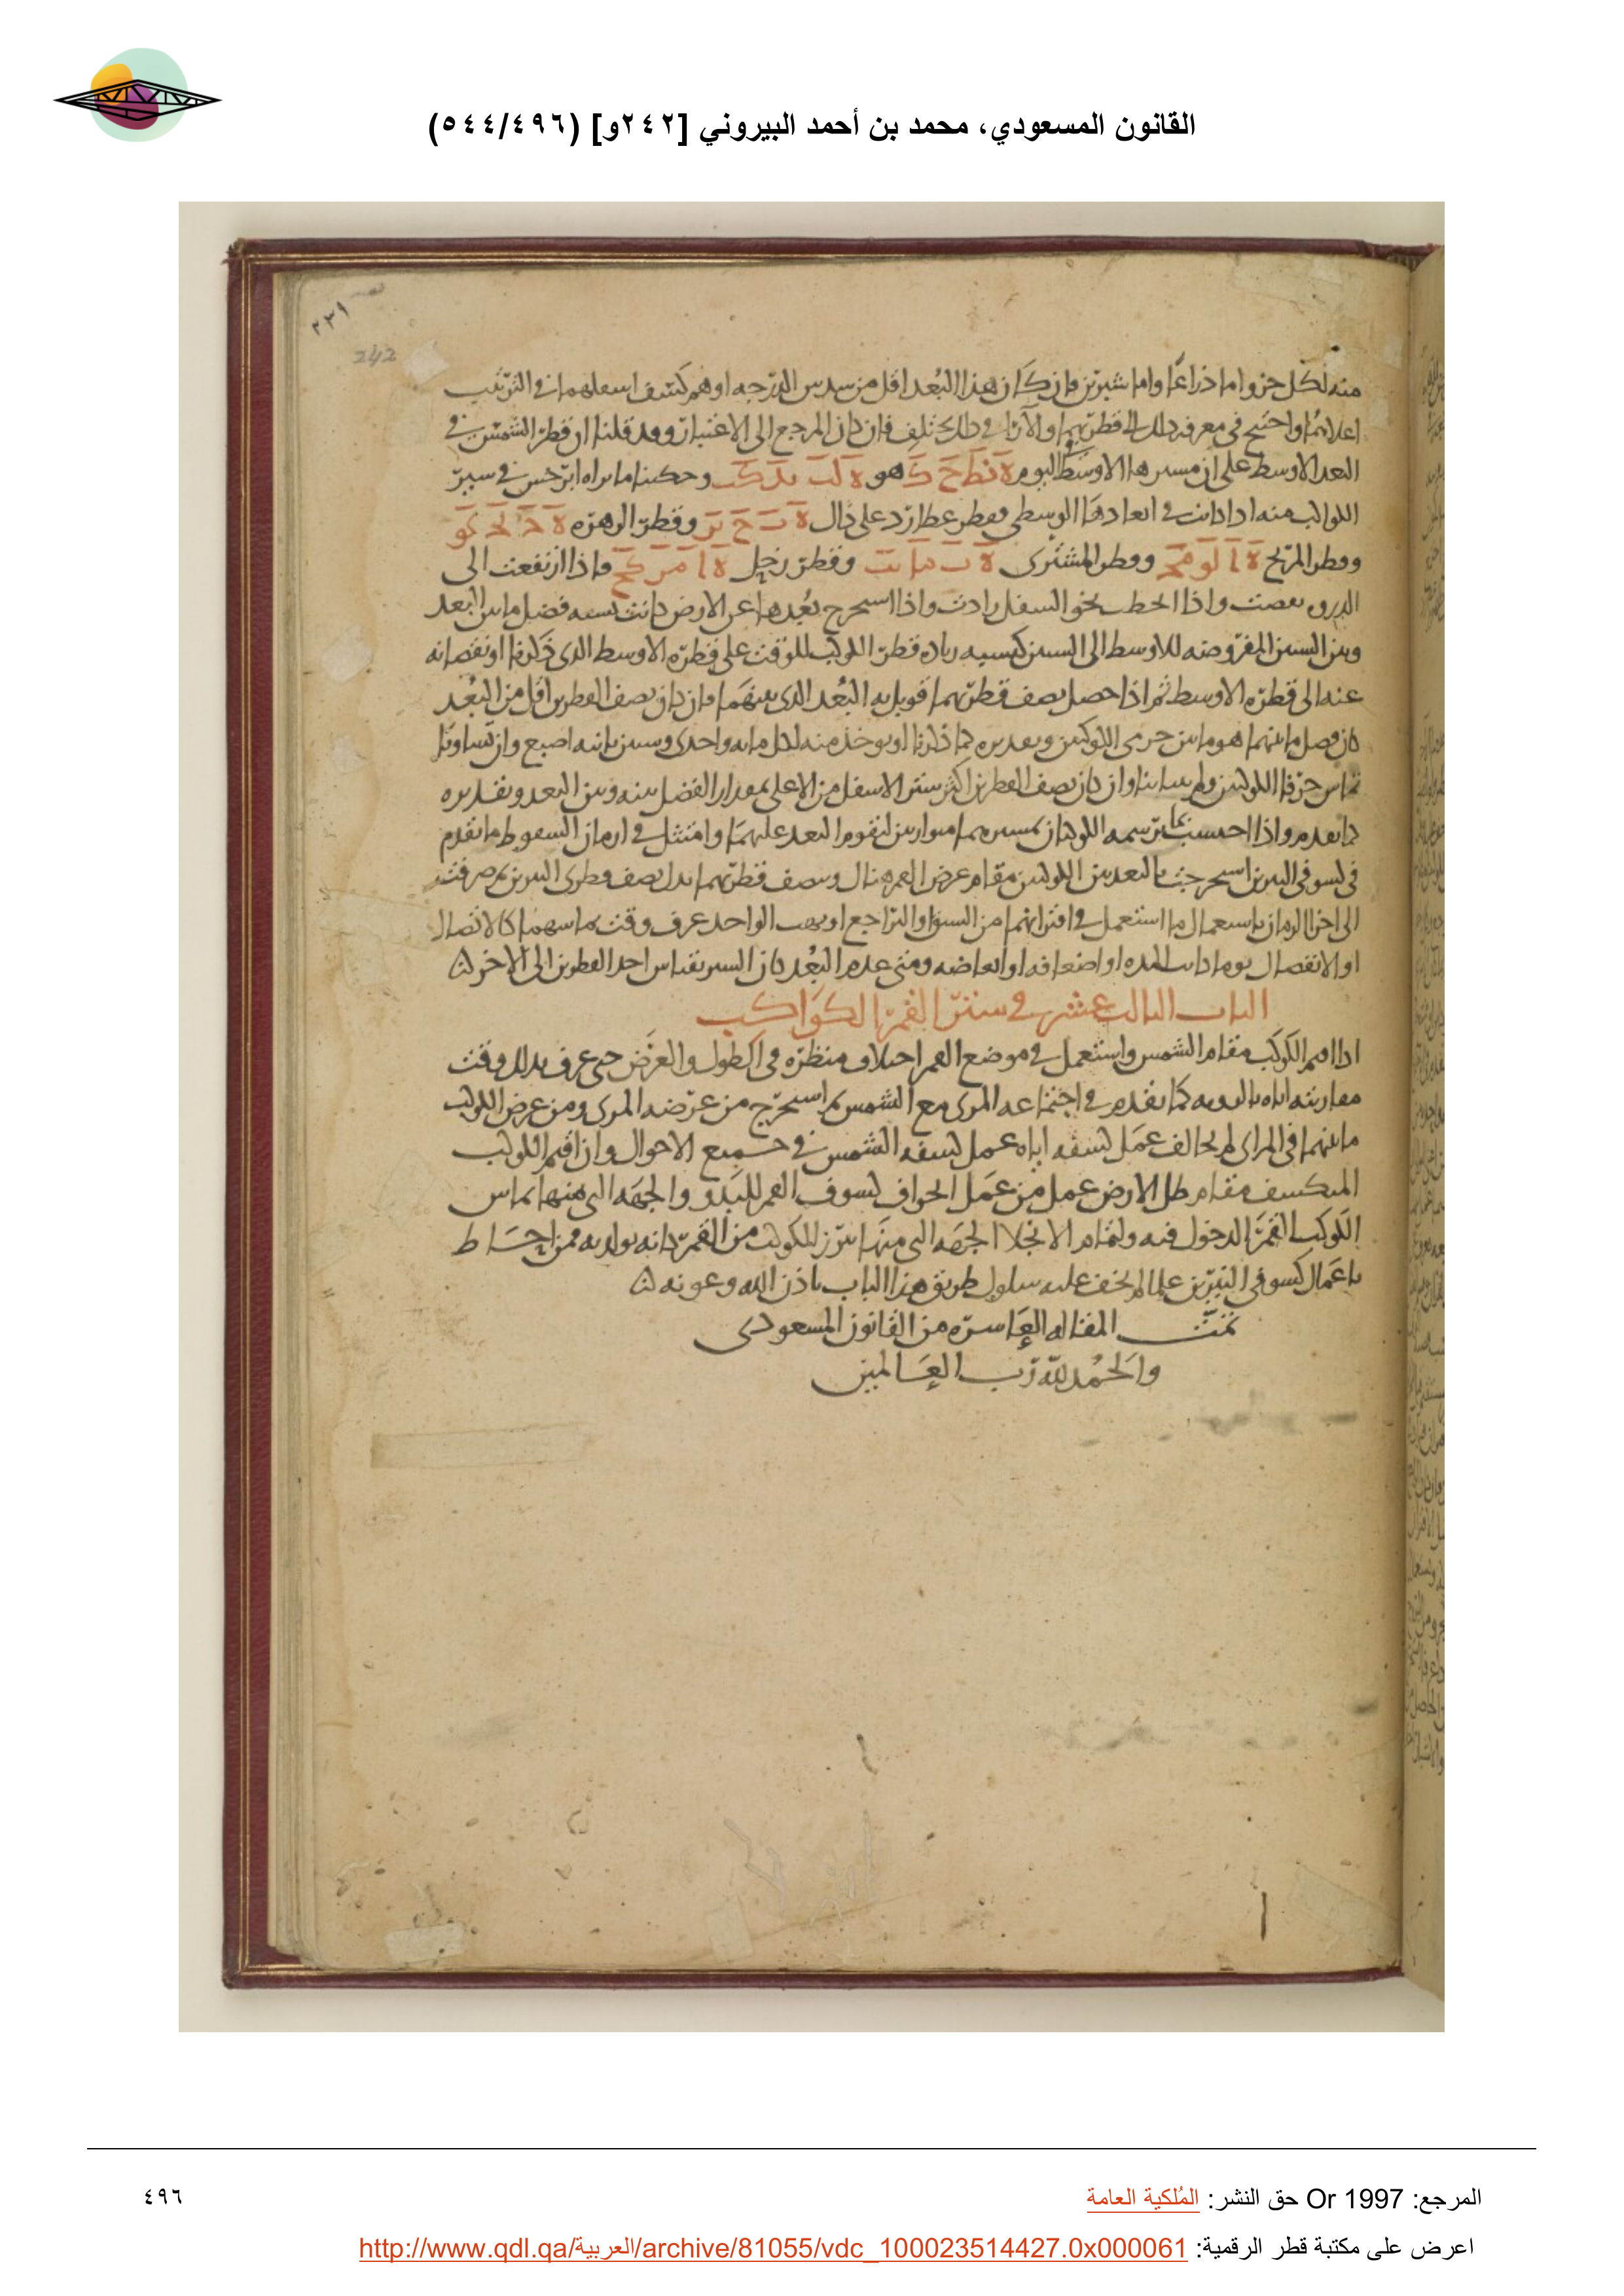 القانون المسعودي، محمد بن أحمد البيروني [٢٤٢و] (٥٤٤/٤٩٦)
٢٣٩
242
منه لكل جزو اما ذراعا واما شبرين فان كان هذا البعد اقل من سدس الدرجه اوهم كشف اسفلهما في الترتيب
اعلاهما واحتيج في معرفه ذلك الى قطريهما والآرا في ذلك تختلف فان كان المرجع الى الاعتبار وقد قلنا ان قطر الشمس في
البعد الاوسط على ان مسيرها الاوسط في اليوم هو وحكينا ما يراه ابرخس في سير
الكواكب منه اذا كانت في ابعادها الوسطى فقطر عطارد على ذلك وقطر الزهره
وقطر المريخ وقطر المشترى وقطر زحل فاذا ارتفعت الى
الذرى نقصت واذا انحطت نحو السفل زادت واذا استخرج بعدها عن الارض كانت نسبه فضل ما بين البعد
وبين الستين المفروضه للاوسط الى الستين كنسبه زياده قطر الكوكب للوقت على قطره الاوسط الذى ذكرنا او نقصانه
عنه الى قطره الاوسط ثم اذا حصل نصف قطريهما قوبل به البعد الذى بينهما فان كان نصف القطرين اقل من البعد
كان فضل ما بينهما هو ما بين جرمى الكوكبين وتقديره كما ذكرنا او يوخذ منه لكل مايه واحدى وستين ثانيه اصبع وان تساويا
تماس جرما الكوكبين ولم يتباينا وان كان نصف القطرين اكثر ستر الاسفل من الاعلى بمقدار الفضل بينه وبين البعد وتقديره
كما تقدم واذا احتسب بما يرسمه الكوكبان بمسيرهما متوازيين ليقوم البعد عليهما وامتثل في ازمان السقوط ما تقدم
في كسوفى النيرين استخرجت بالبعد بين الكوكبين مقام عرض القمر هناك ونصف قطريهما بدل نصف قطرى النيرين ثم صرفت
الى اجزا الزمان باستعمال ما استعمل في اقترانهما من السبق او التراجع او بهت الواحد عرف وقت تماسهما كالاتصال
او الانفصال يوما كانت المده او اضعافه او ابعاضه ومتى عدم البعد كان الستر بقياس احد القطرين الى الاخر
الباب الثالث عشر في ستر القمر الكواكب
اذا اقيم الكوكب مقام الشمس واستعمل في موضع القمر اختلاف منظره في الطول والعرض حتى عرف بذلك وقت
مقارنته اياه بالرويه كما تقدم في اجتماعه المرى مع الشمس ثم استخرج من عرضه المرى ومن عرض الكوكب
ما بينهما في المراى لم يخالف عمل كسفه اياه عمل كسفه الشمس في جميع الاحوال وان اقيم الكوكب
المنكسف مقام ظل الارض عمل من عمل انحراف كسوف القمر للبدو والجهه التى منها يماس
الكوكب القمر للدخول فيه ولتمام الانجلا الجهه التى منها يبرز للكوكب من القمر كانه يولد به فمن احاط
باعمال كسوفى النيرين علما لم يخف عليه سلوك طريق هذا الباب باذن الله وعونه
تمت المقاله العاشره من القانون المسعودى
والحمد لله رب العالمين
المرجع: Or 1997 حق النشر: المُلكية العامة
٤٩٦
اعرض على مكتبة قطر الرقمية: http://www.qdl.qa/العربية/archive/81055/vdc_100023514427.0x000061